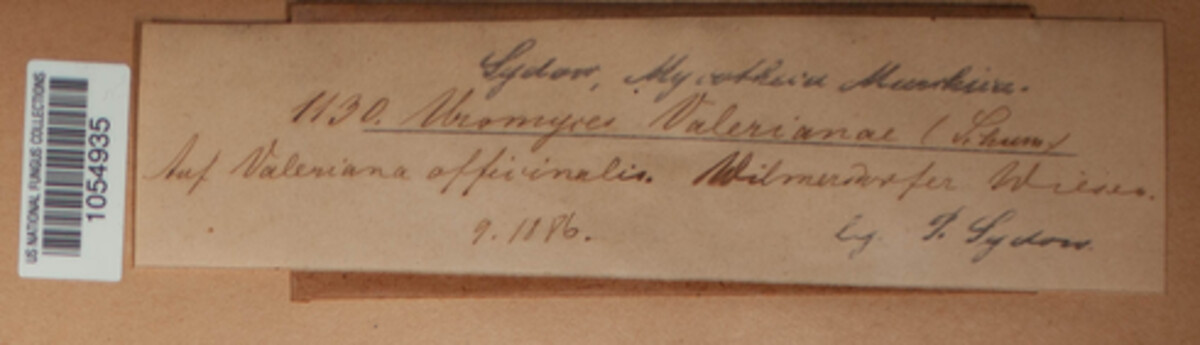 US NATIONAL FUNGUS COLLECTIONS
1054935
Sydow, Mycotheca Marchica.
1130. Uromyces Valerianae (Schum)
Auf Valeriana officinalis. Wilmersdorfer Wiesen.
9. 1886. leg. P. Sydow.